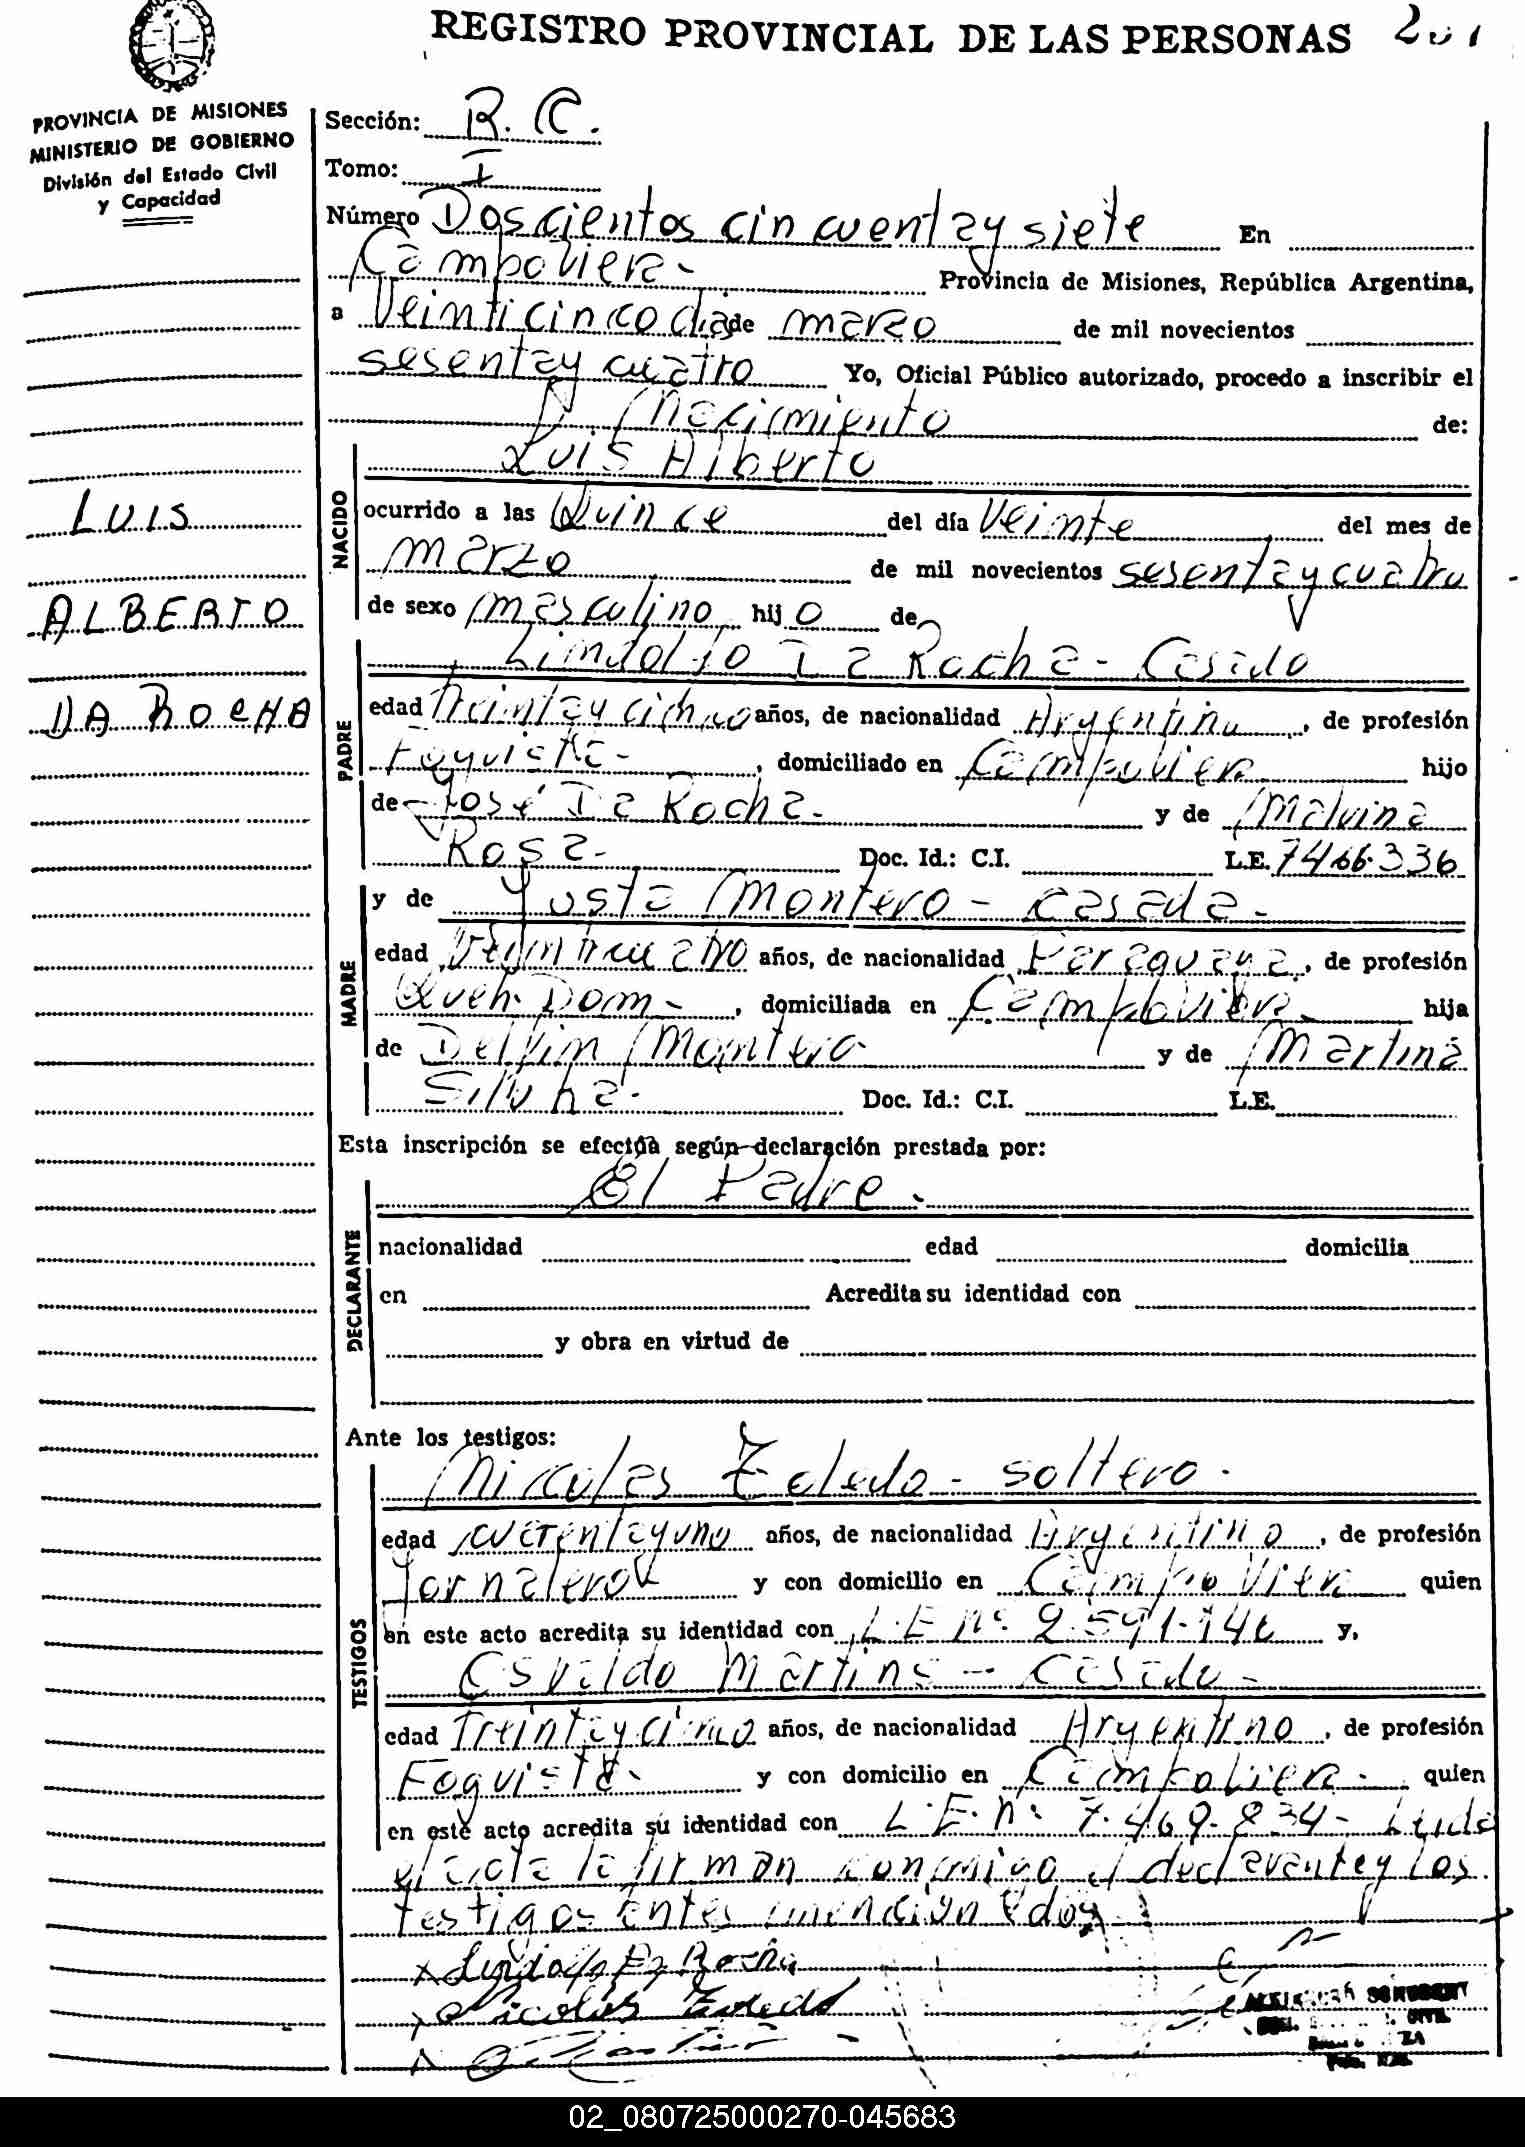 REGISTRO PROVINCIAL DE LAS PERSONAS
PROVINCIA DE MISIONES
MINISTERIO DE GOBIERNO
División del Estado Civil
y Capacidad
LUIS
ALBERTO
DA ROCHA
Sección: R. C.
Tomo: I
Número Doscientos cincuentay siete En
Campoviera - Provincia de Misiones, República Argentina,
a Veinticinco dia de marzo de mil novecientos
sesentay cuatro Yo, Oficial Público autorizado, procedo a inscribir el
Nacimiento de:
Luis Alberto
NACIDO
ocurrido a las Quince del día Veinte del mes de
marzo de mil novecientos sesentay cuatro
de sexo masculino hijo de
Lindolfo Da Rocha - Casado
PADRE
edad Treintay cinco años, de nacionalidad Argentina, de profesión
Foguista -, domiciliado en Campoviera hijo
de José Da Rocha - y de Malvina
Rosa - Doc. Id.: C.I. L.E. 7466.336
y de Yusta Montero - casada -
MADRE
edad Veinticuatro años, de nacionalidad Paraguaya, de profesión
Queh. Dom -, domiciliada en Campoviera - hija
de Delfin Montero y de Martina
Doc. Id.: C.I. L.E.
Esta inscripción se efectúa según declaración prestada por:
El Padre.
DECLARANTE
nacionalidad edad domicilia
en Acredita su identidad con
y obra en virtud de
Ante los testigos:
Niccolas Toledo - soltero -
TESTIGOS
edad cuarentayuno años, de nacionalidad Argentino, de profesión
Jornalero y con domicilio en Campo Viera quien
en este acto acredita su identidad con L.E nº 2.591.146 y,
Osvaldo Martins - Casado -
edad Treintay cinco años, de nacionalidad Argentino, de profesión
Foguista - y con domicilio en Campoviera - quien
en este acto acredita su identidad con L.E. nº 7.469.834 - Leida
el acta la firman conmigo el declarantey los
testigos antes mencionados
Lindolfo Da Rocha
Nicolás Toledo
02_080725000270-045683